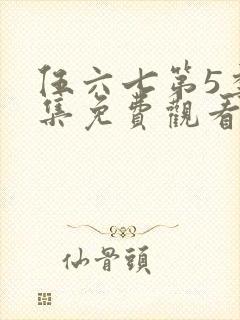 伍六七第5季
集免費觀看
仙骨頭